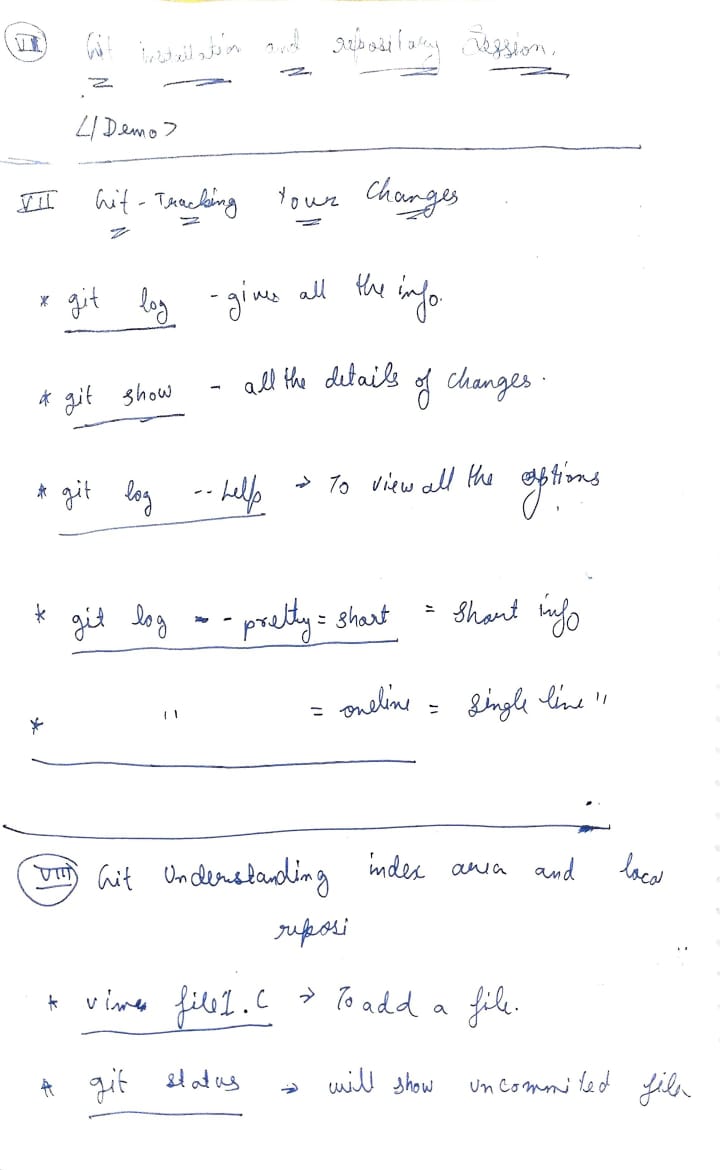 VI Git installation and repositary Session.
<//Demo>
VII Git - Tracking Your Changes
* git log - gives all the info.
* git show - all the details of changes.
* git log --help → To view all the options
* git log -- pretty = short = Short info
* " = oneline = single line "
VIII Git Understanding index area and local
reposi
* file1.c → To add a file.
* git status → will show uncommited file